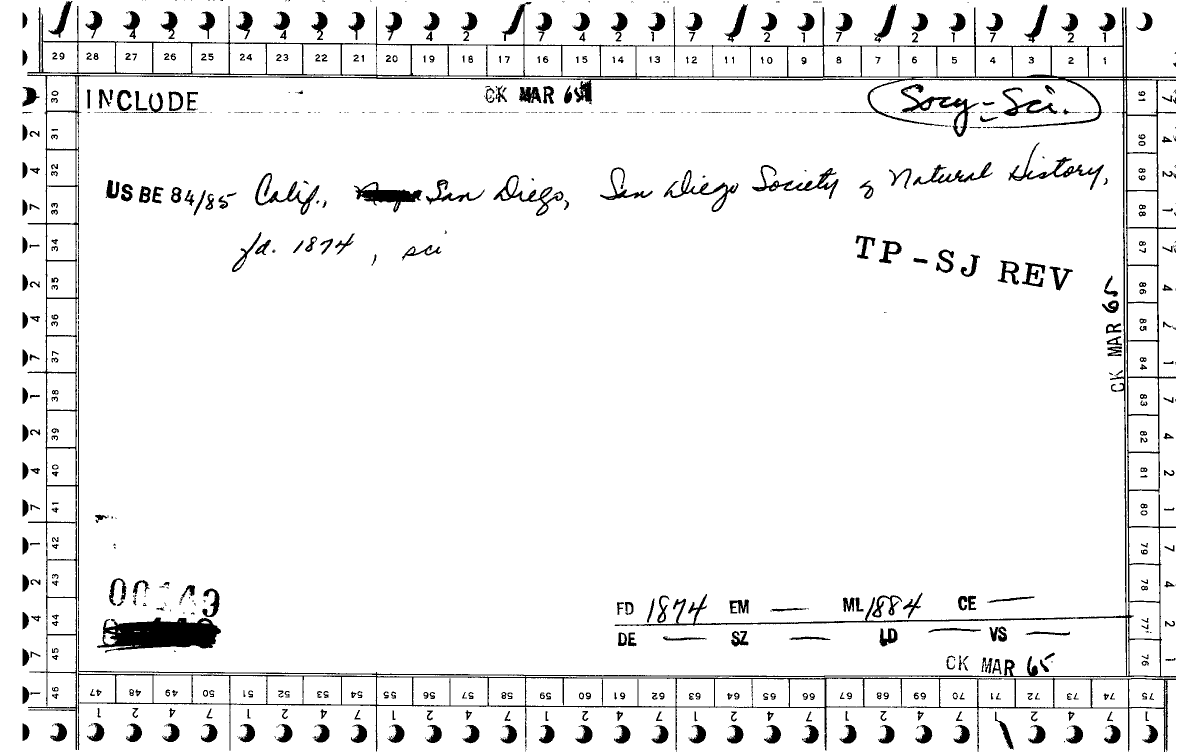 7 4 2 1 7 4 2 1 7 4 2 1 7 4 2 1 7 4 2 1 7 4 2 1 7 4 2 1
29 28 27 26 25 24 23 22 21 20 19 18 17 16 15 14 13 12 11 10 9 8 7 6 5 4 3 2 1
INCLUDE CK MAR 65 Socy-Sci.
US BE 84/85 Calif., San Diego, San Diego Society of Natural History,
fd. 1874, sci
TP-SJ REV
CK MAR 65
FD 1874 EM — ML 1884 CE —
DE — SZ — LD — VS —
CK MAR 65
30 31 32 33 34 35 36 37 38 39 40 41 42 43 44 45 46
1 2 4 7 1 2 4 7 1 2 4 7 1 2 4 7 1
91 90 89 88 87 86 85 84 83 82 81 80 79 78 77 76 75
7 4 2 1 7 4 2 1 7 4 2 1 7 4 2 1
47 48 49 50 51 52 53 54 55 56 57 58 59 60 61 62 63 64 65 66 67 68 69 70 71 72 73 74 75
1 2 4 7 1 2 4 7 1 2 4 7 1 2 4 7 1 2 4 7 1 2 4 7 1 2 4 7 1